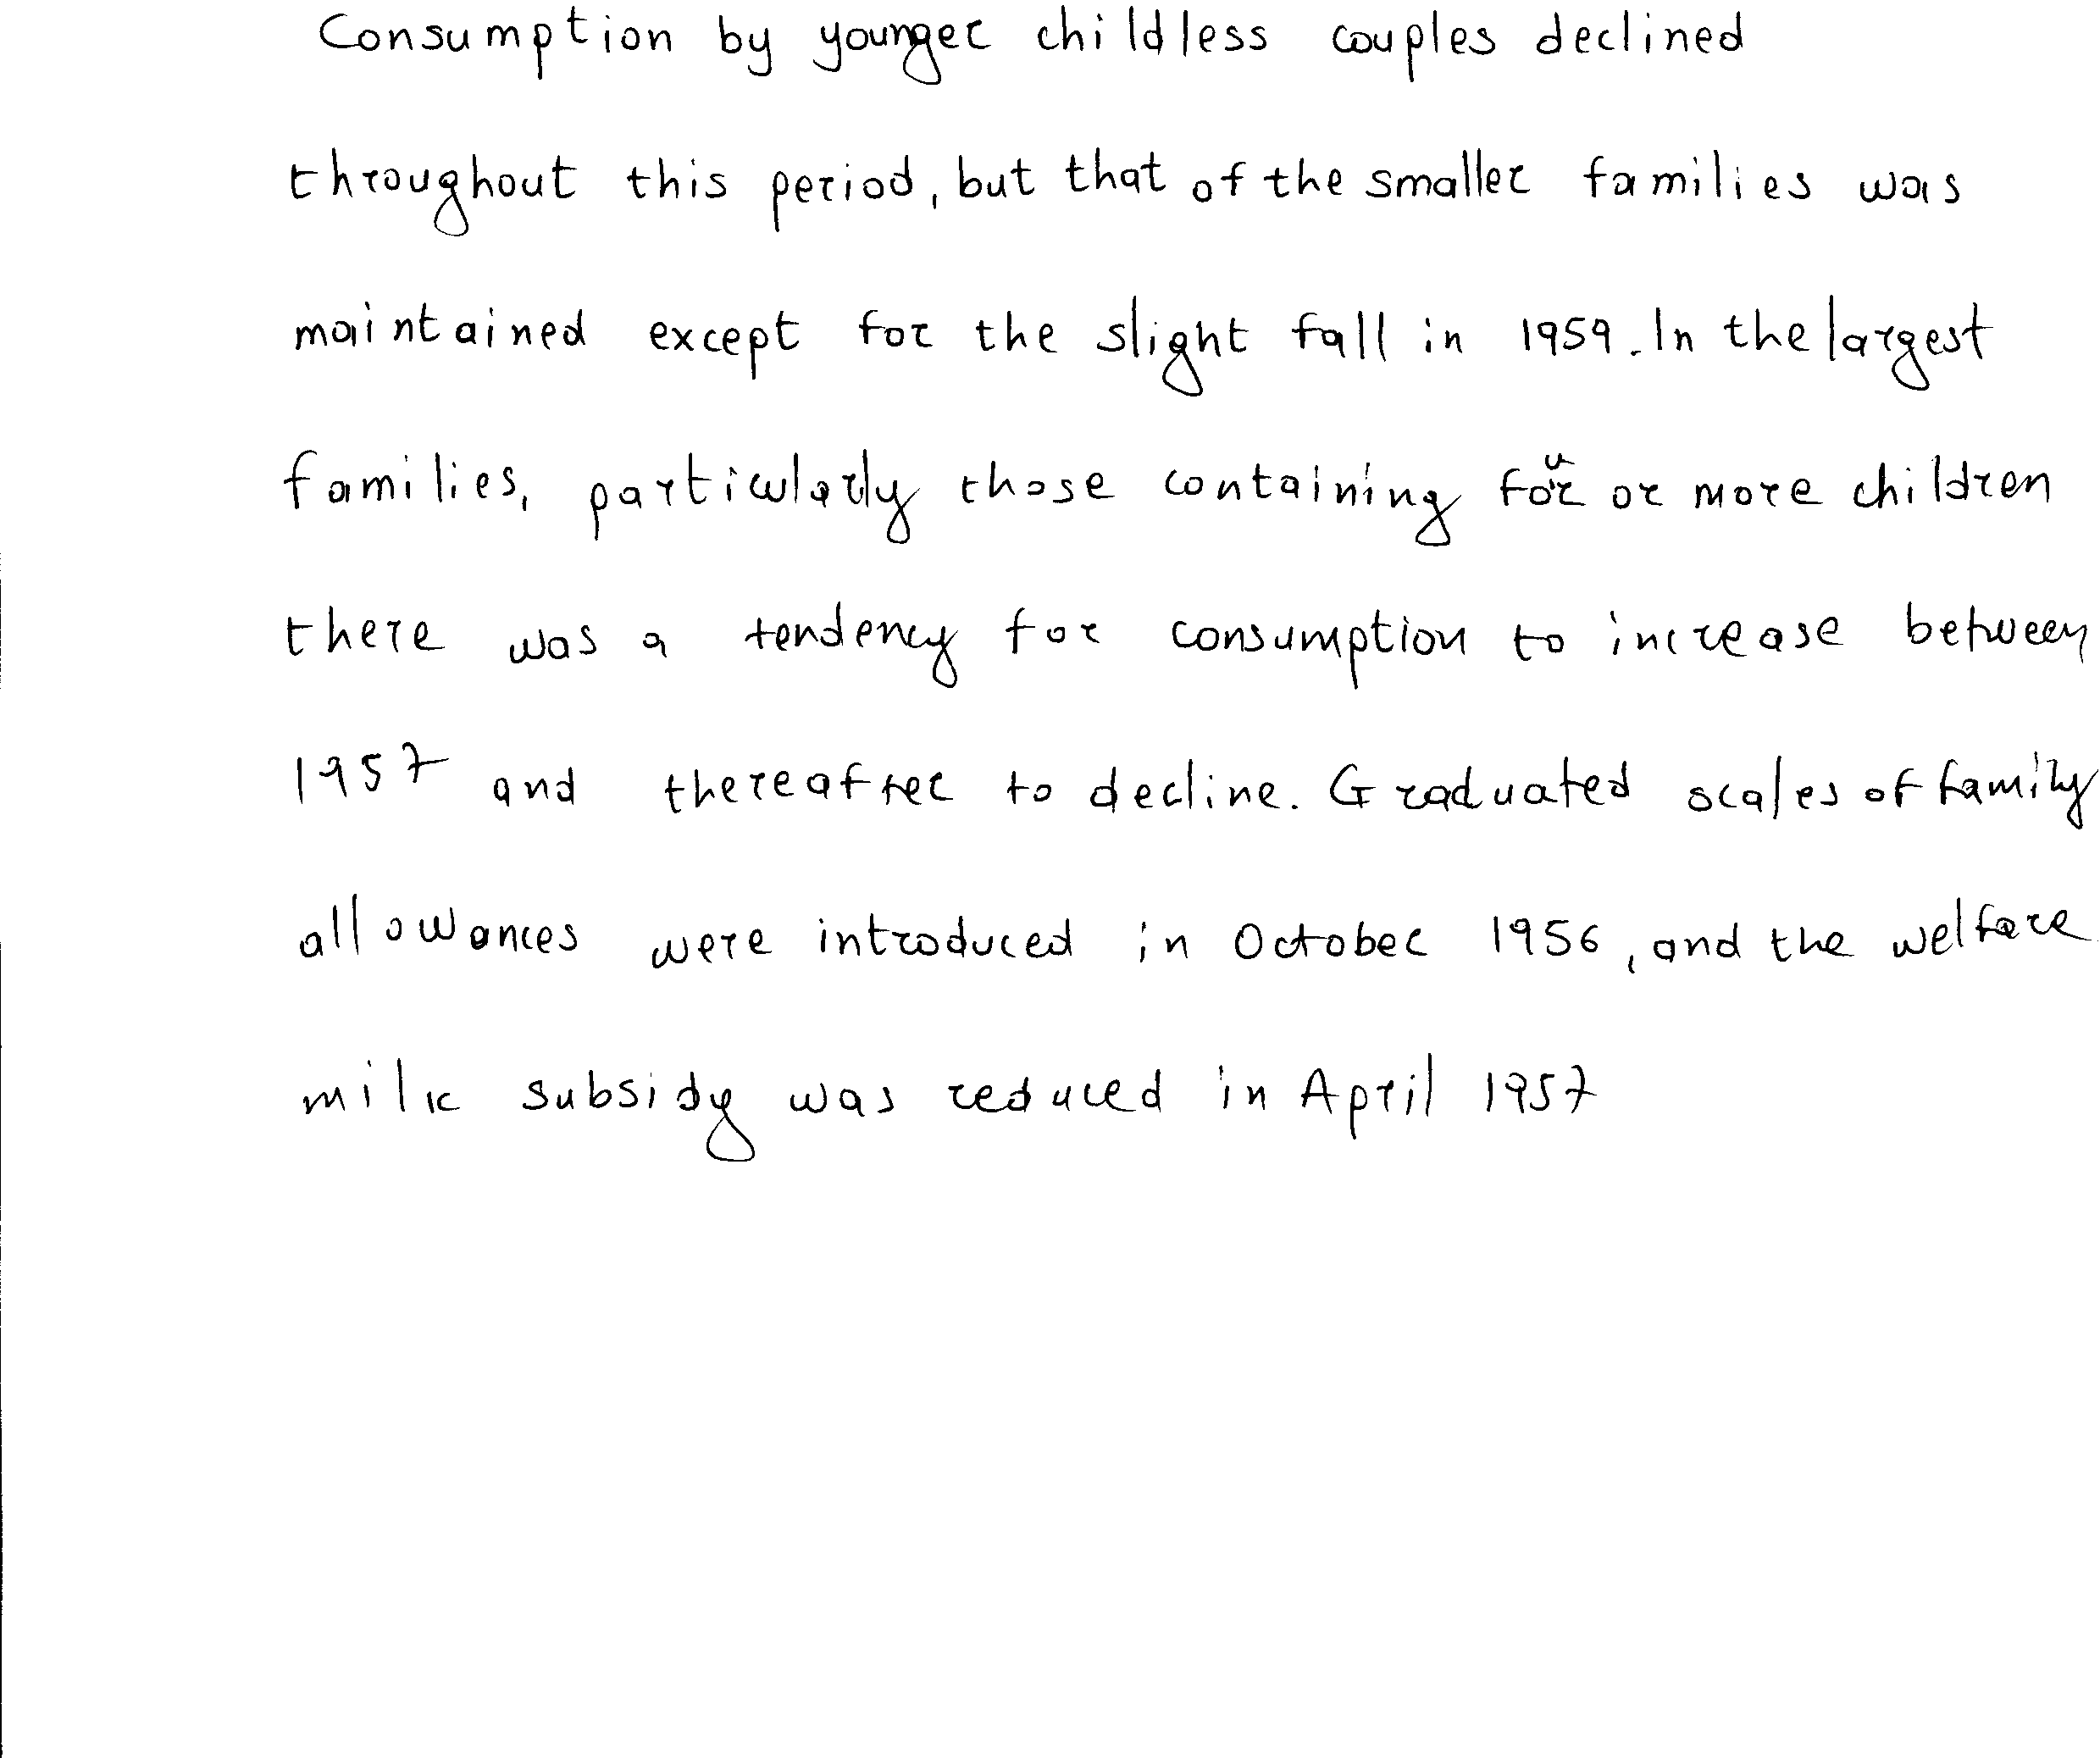 Consumption by younger childless couples declined
throughout this period, but that of the smaller families was
maintained except for the slight fall in 1959. In the largest
families, particularly those containing four or more children
there was a tendency for consumption to increase between
1957 and thereafter to decline. Graduated scales of family
allowances were introduced in October 1956, and the welfare
milk subsidy was reduced in April 1957